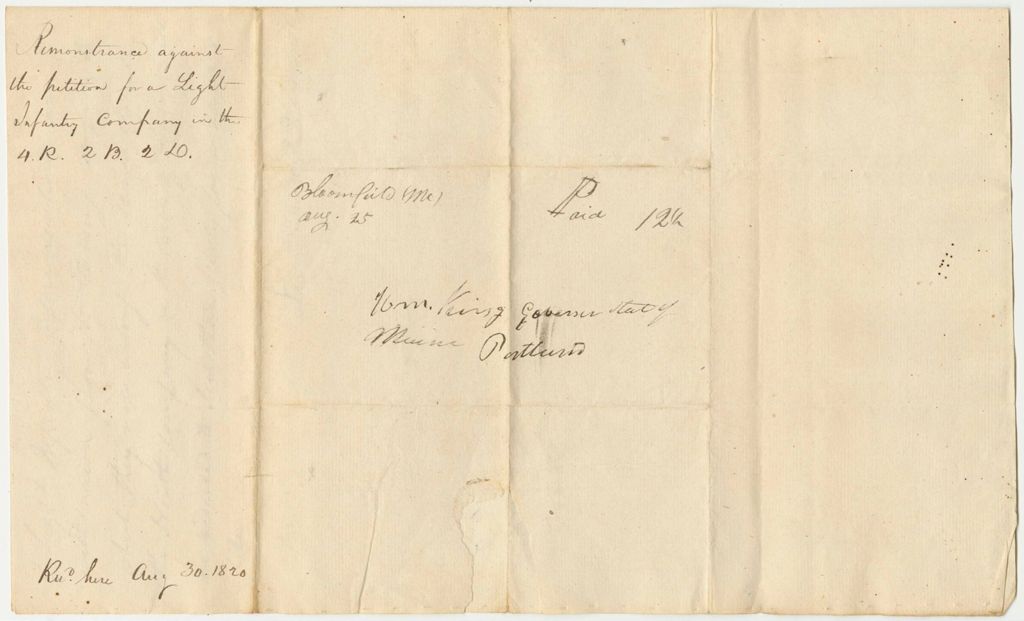 Remonstrance against
the petition for a Light
Infantry Company in the
4. R. 2 B. 2 D.
Bloomfield (Me)
Aug. 25
Paid 12½
Wm. King Governer State of
Maine Portland
Recd. here Aug 30. 1820